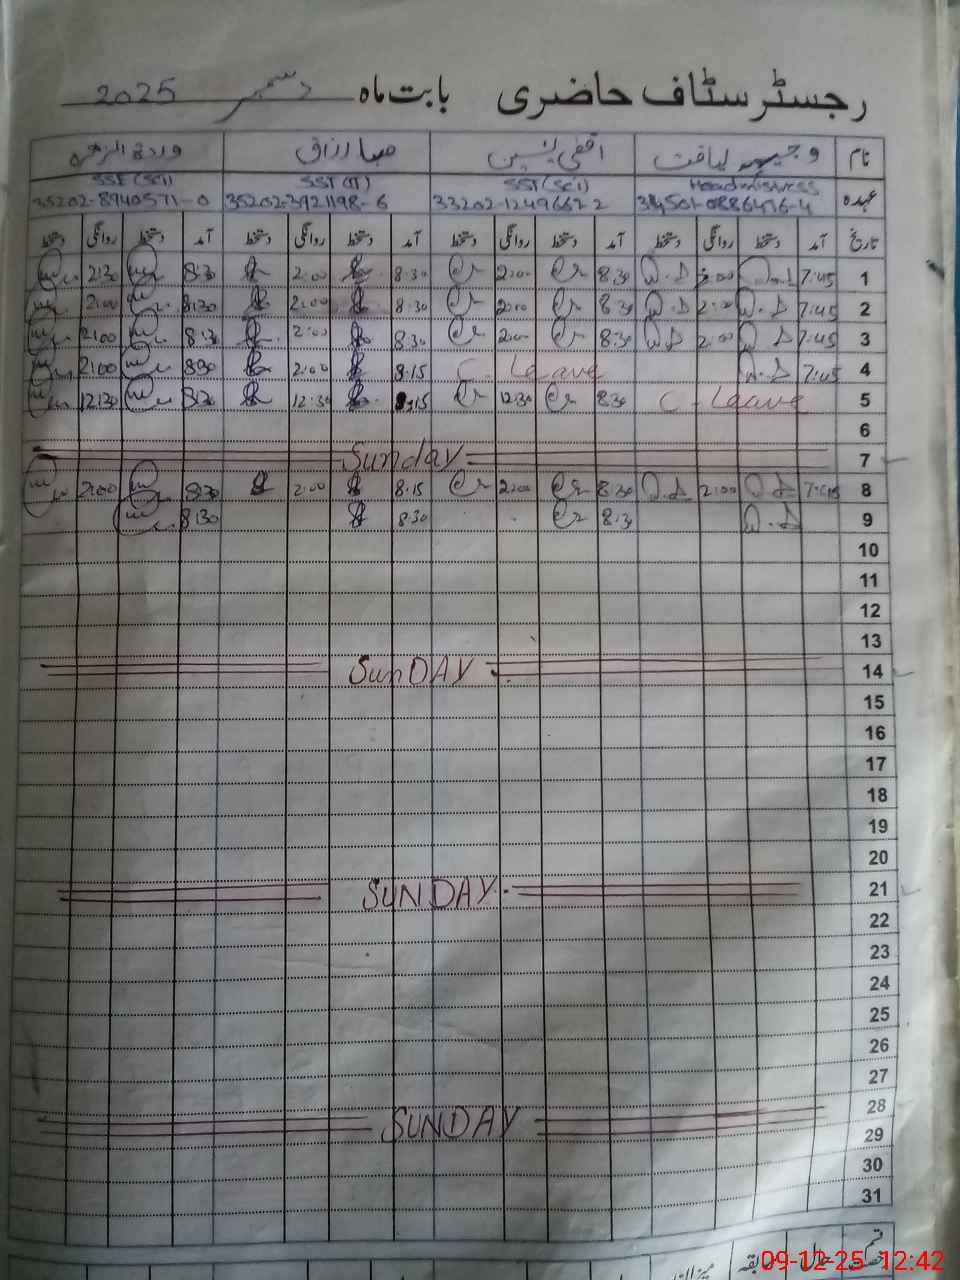 رجسٹر سٹاف حاضری بابت ماہ دسمبر 2025
نام وجیہہ لیاقت اقصیٰ یٰسین صبا رزاق
عہدہ Headmistress SST (Sci) SST (IT) SSE (Sci)
33202-1249667-2 35202-3921198-6 35202-8940571-0
تاریخ آمد دستخط روانگی دستخط آمد دستخط روانگی دستخط آمد دستخط روانگی دستخط آمد دستخط روانگی دستخط
1 7:45 8:30 2:00 8:30 2:00 8:30 2:30
2 7:45 2:00 8:30 2:00 8:30 2:00 8:30 2:00
3 7:45 2:00 8:30 2:00 8:30 2:00 8:30 2:00
4 7:45 C. Leave 8:15 2:00 8:30 2:00
5 C. Leave 8:30 12:30 12:30 12:30
6
7 Sunday
8 7:45 2:00 8:30 2:00 8:15 2:00 8:30 2:00
9 8:30 8:30 8:30
10
11
12
13
14 SunDAY
15
16
17
18
19
20
21 SUNDAY
22
23
24
25
26
27
28 SUNDAY
29
30
31
قسم حال
09-12-25 12:42